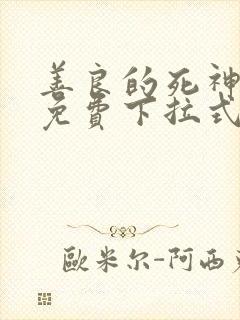 善良的死神
免费下拉式
歐米尔-阿西